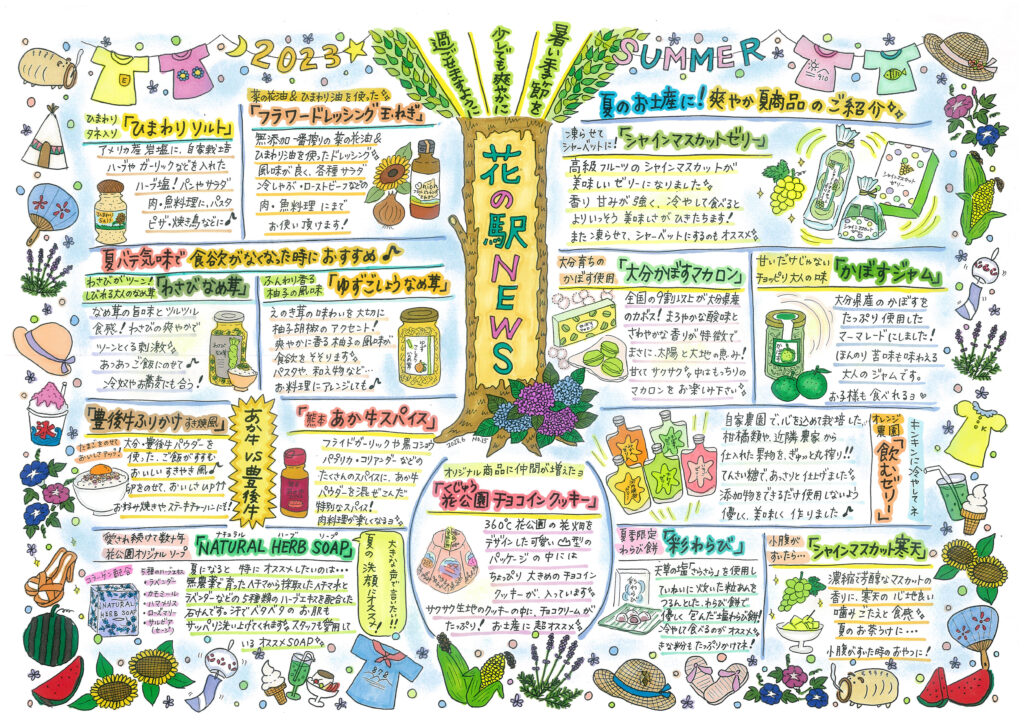 2023
SUMMER
暑い季節を
少しでも爽やかに
過ごせますように
花の駅NEWS
2023.6 No.15
ひまわり
9本入り
「ひまわりソルト」
アメリカ産岩塩に、自家栽培
ハーブやガーリックなどを入れた
ハーブ塩！パンやサラダ
肉・魚料理に、パスタ
ピザ・焼き鳥などに♪
菜の花油&ひまわり油を使った
「フラワードレッシング玉ねぎ」
無添加一番搾りの菜の花油&
ひまわり油を使ったドレッシング
風味が良く、各種サラダ
冷しゃぶ・ローストビーフなどの
肉・魚料理にまで
お使い頂けます！
夏バテ気味で食欲がなくなった時におすすめ♪
わさびがツーン！
しびれる大人のなめ茸
「わさびなめ茸」
なめ茸の旨味とツルツル
食感！わさびの爽やかで
ツーンとくる刺激
あっあっご飯にのせて
冷奴やお蕎麦にも合う！
ふんわり香る
柚子の風味
「ゆずこしょうなめ茸」
えのき茸の味わいを大切に
柚子胡椒のアクセント！
爽やかに香る柚子の風味が
食欲をそそります
パスタや、和え物など…
お料理にアレンジしても♪
「豊後牛ふりかけ すき焼風」
たまごをのせて
おいしさアップ！
大分・豊後牛パウダーを
使った、ご飯がすすむ
おいしいすきやき風♪
卵をのせて、おいしさUP
お好み焼きやステーキチャーハンに！
あか牛VS豊後牛
「熊本 あか牛スパイス」
フライドガーリックや黒コショウ
パプリカ・コリアンダーなどの
たくさんのスパイスに、あか牛
パウダーを混ぜこんだ
特別なスパイス！
肉料理が楽しくなるヨ
愛され続けて数十年
花公園オリジナルソープ
「NATURAL HERB SOAP」
ナチュラル ハーブ ソープ
コラーゲン配合
5種のハーブエキス
・ラベンダー
・カモミール
・ハマメリス
・ローズマリー
・サルビア
(セージ)
NATURAL
HERB SOAP
夏になると特にオススメしたいのは…
無農薬で育ったヘチマから採取したヘチマ水と
ラベンダーなどの5種類のハーブエキスを配合した
石けんです。汗でベタベタのお肌も
サッパリ洗い上げてくれます。スタッフも愛用して
いるオススメSOAP
大きな声で言いたい!!
夏の洗顔にオススメ!
オリジナル商品に仲間が増えたヨ
「くじゅう
花公園チョコインクッキー」
360°花公園の花畑を
デザインした可愛い山型の
パッケージの中には
ちょっぴり大きめのチョコイン
クッキーが、入っています
サクサク生地のクッキーの中に、チョコクリームが
たっぷり！お土産に超オススメ
夏のお土産に！爽やか夏商品のご紹介
凍らせて
シャーベットに!
「シャインマスカットゼリー」
高級フルーツのシャインマスカットが
美味しいゼリーになりました
香り甘みが強く、冷やして食べると
よりいっそう美味しさがひきたちます！
また凍らせて、シャーベットにするのもオススメ
シャインマスカット
ゼリー
大分育ちの
かぼす使用
「大分かぼすマカロン」
全国の9割以上が大分県産
のカボス！まろやかな酸味と
さわやかな香りが特徴で
まさに、太陽と大地の恵み！
甘くてサクサク中はもっちりの
マカロンをお楽しみ下さい
甘いだけじゃない
チョッピリ大人の味
「かぼすジャム」
大分県産のかぼすを
たっぷり使用した
マーマレードにしました！
ほんのり苦味も味わえる
大人のジャムです。
お子様も食べれるヨ
オレンジ
農園
「飲むゼリー」
キンキンに冷やしてネ
自家農園で、心を込めて栽培した
柑橘類や、近隣農家から
仕入れた果物を、ぎゅっと丸搾り!!
てんさい糖であっさりと仕上げました
添加物をできるだけ使用しないよう
優しく、美味しく作りました♪
夏季限定
わらび餅
「彩わらび」
天草の塩「さらさら」を使用して
ていねいに炊いた粒あんを
つるんとした、わらび餅で
優しく包んだ塩わらび餅！
冷やして食べるのがオススメ
きな粉もたっぷりかけてネ！
小腹が
すいたら…
「シャインマスカット寒天」
濃縮で芳醇なマスカットの
香りに、寒天のじも良い
歯ごたえと食感
夏のお茶うけに…
小腹がすいた時のおやつに！